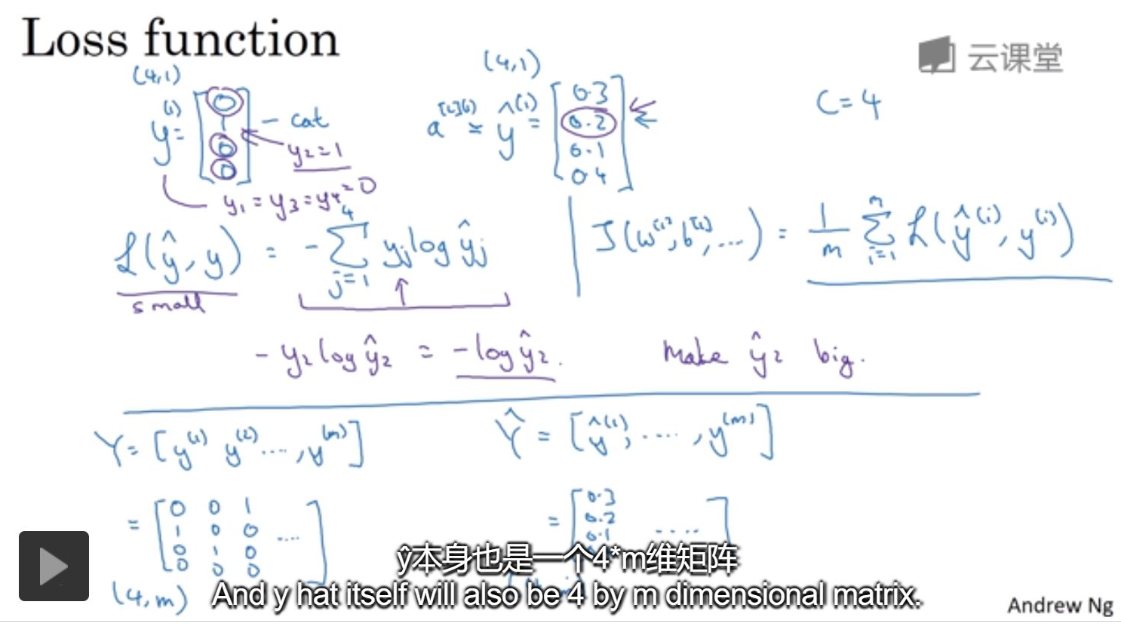 Loss function
云课堂
(4,1)
y⁽¹⁾ = [0 1 0 0] - cat
y₂=1
y₁ = y₃ = y₄ = 0
(4,1)
a^[L](1) = ŷ⁽¹⁾ = [0.3 0.2 0.1 0.4]
C=4
ℒ(ŷ, y) = - Σ_{j=1}^{4} y_j log ŷ_j
small
J(w^[1], b^[1], ...) = 1/m Σ_{i=1}^{m} ℒ(ŷ⁽ⁱ⁾, y⁽ⁱ⁾)
- y₂ log ŷ₂ = - log ŷ₂. Make ŷ₂ big.
Y = [y⁽¹⁾ y⁽²⁾ ..., y⁽ᵐ⁾]
Ŷ = [ŷ⁽¹⁾, ...., y⁽ᵐ⁾]
= [0 0 1
1 0 0 ....
0 1 0
0 0 0]
(4,m)
= [0.3
0.2 .....
0.1
ŷ本身也是一个4*m维矩阵
And y hat itself will also be 4 by m dimensional matrix.
Andrew Ng